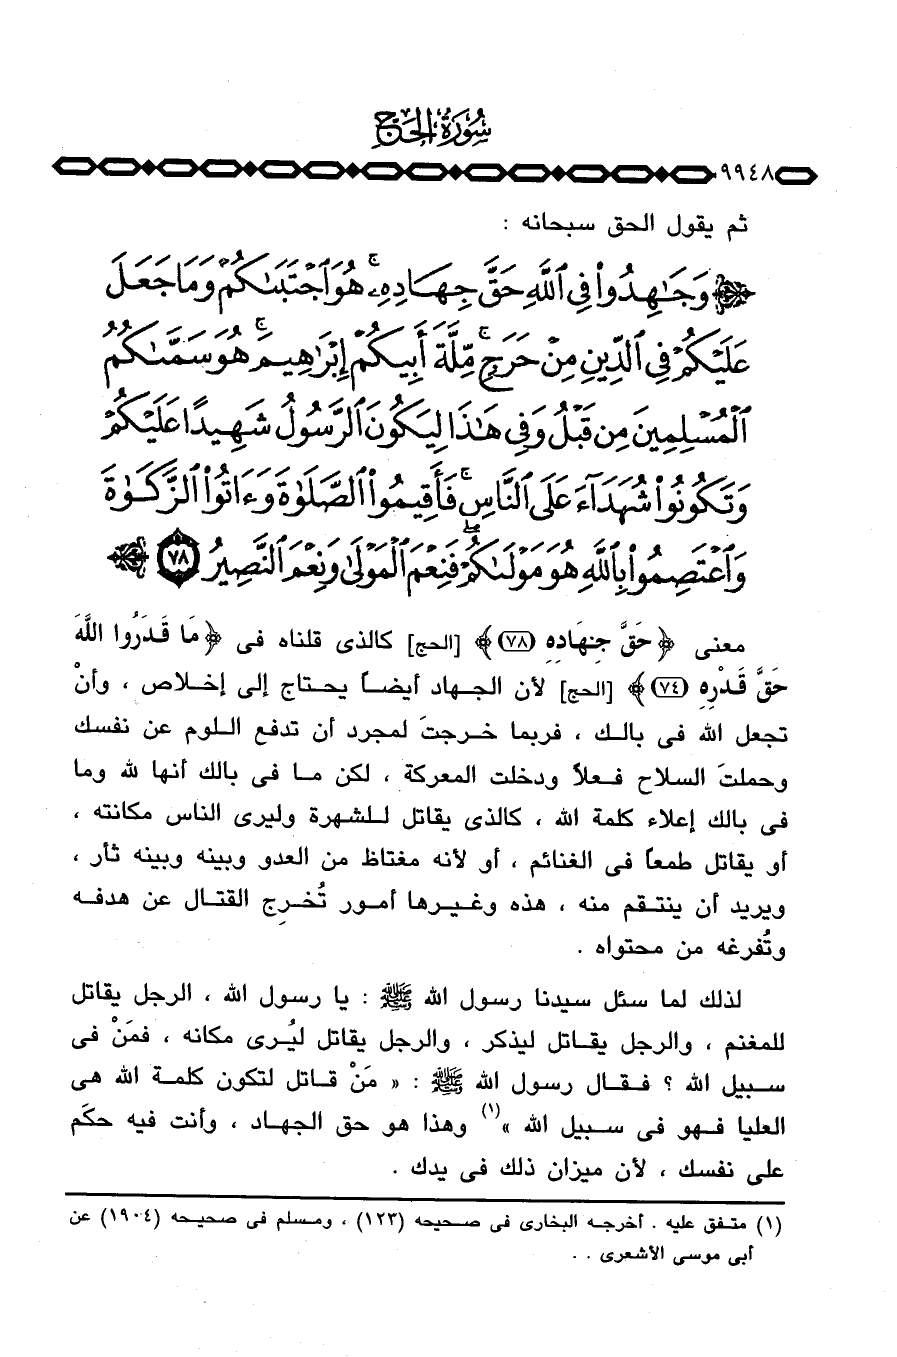 سُورَةُ الحَجّ
٩٩٤٨
ثم يقول الحق سبحانه :
وَجَٰهِدُوا۟ فِى ٱللَّهِ حَقَّ جِهَادِهِۦ ۚ هُوَ ٱجْتَبَىٰكُمْ وَمَا جَعَلَ
عَلَيْكُمْ فِى ٱلدِّينِ مِنْ حَرَجٍ ۚ مِّلَّةَ أَبِيكُمْ إِبْرَٰهِيمَ ۚ هُوَ سَمَّىٰكُمُ
ٱلْمُسْلِمِينَ مِن قَبْلُ وَفِى هَٰذَا لِيَكُونَ ٱلرَّسُولُ شَهِيدًا عَلَيْكُمْ
وَتَكُونُوا۟ شُهَدَآءَ عَلَى ٱلنَّاسِ ۚ فَأَقِيمُوا۟ ٱلصَّلَوٰةَ وَءَاتُوا۟ ٱلزَّكَوٰةَ
وَٱعْتَصِمُوا۟ بِٱللَّهِ هُوَ مَوْلَىٰكُمْ ۖ فَنِعْمَ ٱلْمَوْلَىٰ وَنِعْمَ ٱلنَّصِيرُ ٧٨
معنى ﴿حَقَّ جِهَادِهِ (٧٨)﴾ [الحج] كالذى قلناه فى ﴿مَا قَدَرُوا اللَّهَ
حَقَّ قَدْرِهِ (٧٤)﴾ [الحج] لأن الجهاد أيضاً يحتاج إلى إخلاص ، وأنْ
تجعل الله فى بالك ، فربما خرجتَ لمجرد أن تدفع اللوم عن نفسك
وحملتَ السلاح فعلاً ودخلت المعركة ، لكن ما فى بالك أنها لله وما
فى بالك إعلاء كلمة الله ، كالذى يقاتل للشهرة وليرى الناس مكانته ،
أو يقاتل طمعاً فى الغنائم ، أو لأنه مغتاظ من العدو وبينه وبينه ثأر ،
ويريد أن ينتقم منه ، هذه وغيرها أمور تُخرِج القتال عن هدفه
وتُفرغه من محتواه .
لذلك لما سئل سيدنا رسول الله ﷺ : يا رسول الله ، الرجل يقاتل
للمغنم ، والرجل يقاتل ليذكر ، والرجل يقاتل ليُرى مكانه ، فمَنْ فى
سبيل الله ؟ فقال رسول الله ﷺ : « مَنْ قاتل لتكون كلمة الله هى
العليا فهو فى سبيل الله »(١) وهذا هو حق الجهاد ، وأنت فيه حكَم
على نفسك ، لأن ميزان ذلك فى يدك .
(١) متفق عليه . أخرجه البخارى فى صحيحه (١٢٣) ، ومسلم فى صحيحه (١٩٠٤) عن
أبى موسى الأشعرى . .